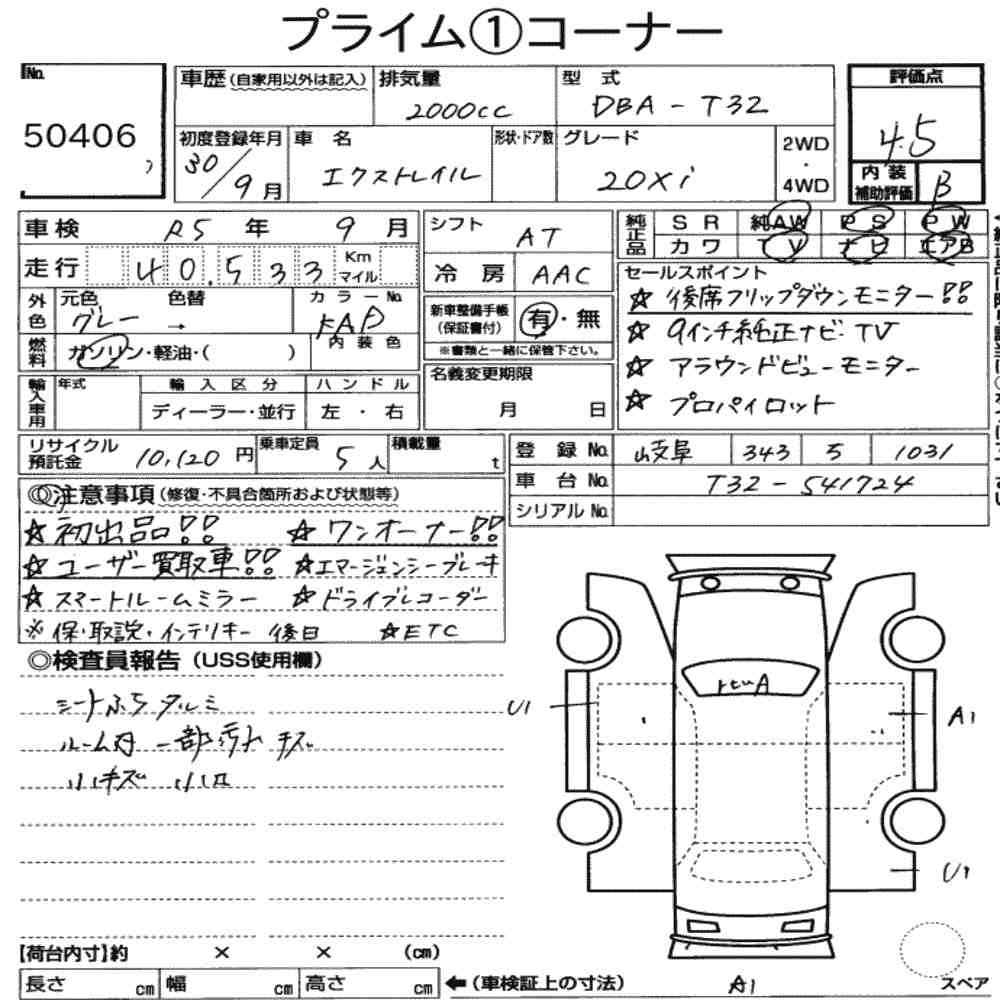 プライム①コーナー
No. 50406
車歴(自家用以外は記入) 排気量 2000cc 型式 DBA-T32 評価点 4.5
初度登録年月 30/9月 車名 エクストレイル 形状・ドア数 グレード 20Xi 2WD・4WD 内装補助評価 B
車検 R5年 9月 シフト AT 純正品 SR 純AW PS PW
走行 40,533 Km マイル 冷房 AAC カワ TV ナビ エアB
外色 元色 グレー → 色替 カラーNo. KAD 新車整備手帳(保証書付) 有・無
※書類と一緒に保管下さい。
燃料 ガソリン・軽油・( ) 内装色
セールスポイント
☆ 後席フリップダウンモニター!!
☆ 9インチ純正ナビ・TV
☆ アラウンドビューモニター
☆ プロパイロット
輸入車用 年式 輸入区分 ディーラー・並行 ハンドル 左・右 名義変更期限 月 日
リサイクル預託金 10,120円 乗車定員 5人 積載量 t
登録No. 岐阜 343 5 1031
車台No. T32-541724
シリアルNo.
◎注意事項(修復・不具合箇所および状態等)
☆初出品!! ☆ワンオーナー!!
☆ユーザー買取車!! ☆エマージェンシーブレーキ
☆スマートルームミラー ☆ドライブレコーダー
※保・取説・インテリキー 後日 ☆ETC
◎検査員報告(USS使用欄)
シートふちタルミ
ルーム内 一部汚れ キズ
小キズ 小凹
トビA
U1
A1
U1
A1
スペア
【荷台内寸】約 × × (cm)
長さ cm 幅 cm 高さ cm ←(車検証上の寸法)